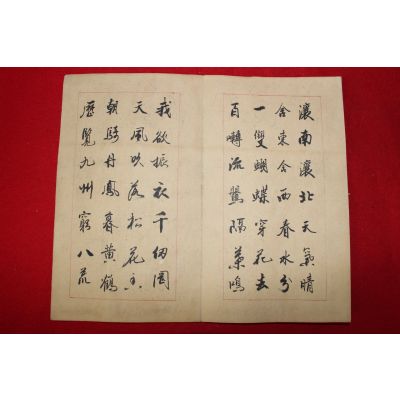 瀼南瀼北天氣晴
舍東舍西春水分
一雙蝴蝶穿花去
百囀流鶯隔葉鳴
我欲振衣千仞岡
天風吹落松花香
朝騎丹鳳暮黃鶴
歷覽九州窮八荒